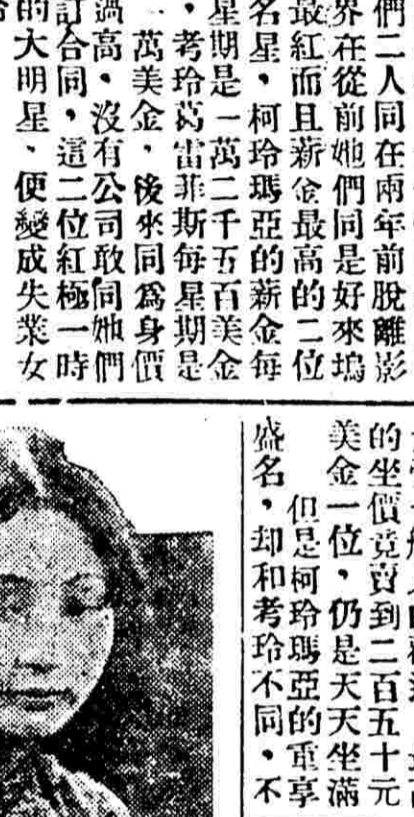 們二人同在兩年前脫離影
界在從前她們同是好來塢
最紅而且薪金最高的二位
名星，柯玲瑪亞的薪金每
星期是一萬二千五百美金
，考玲葛雷菲斯每星期是
一萬美金，後來同爲身價
過高，沒有公司敢同她們
訂合同，這二位紅極一時
的大明星、便變成失業女
的坐價竟賣到二百五十元
美金一位，仍是天天坐滿
但是柯玲瑪亞的重享
盛名，却和考玲不同，不